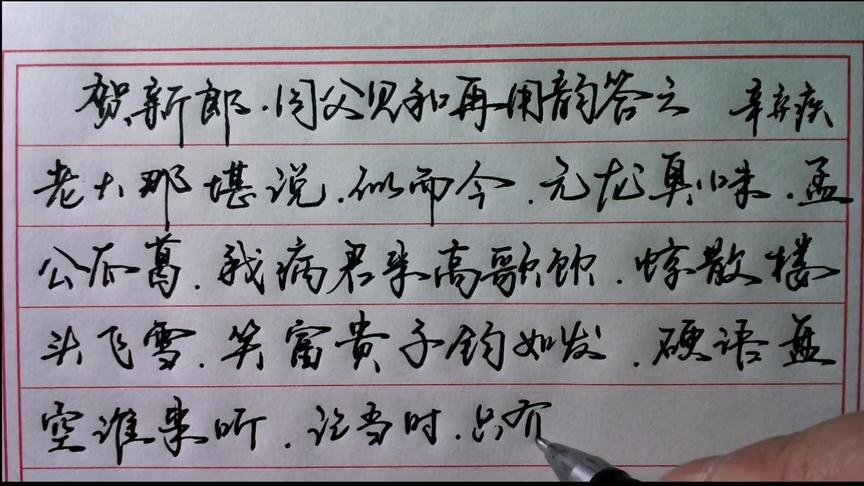 贺新郎.同父见和再用韵答之 辛弃疾
老大那堪说.似而今.元龙臭味.孟
公瓜葛.我病君来高歌饮.惊散楼
头飞雪.笑富贵千钧如发.硬语盘
空谁来听.记当时.只有